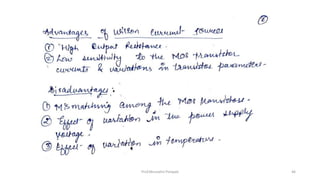 6
Advantages of Wilson Current Sources
① High Output Resistance.
② Low sensitivity to the MOS transistor
currents & variations in transistor parameters.
Disadvantages:
① Mismatching among the MOS transistors.
② Effect of variation in the power supply
voltage.
③ Effect of variation in temperature.